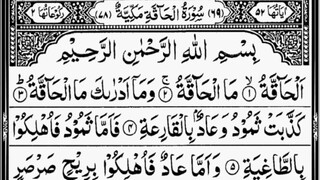 اٰيَاتُهَا ٥٢ (٦٩) سُوْرَةُ الْحَآقَّةِ مَكِّيَّةٌ (٧٨) رُكُوْعَاتُهَا ٢
بِسْمِ اللّٰهِ الرَّحْمٰنِ الرَّحِيْمِ
اَلْحَآقَّةُ ۙ‏﴿۱﴾ مَا الْحَآقَّةُ ۚ‏﴿۲﴾ وَمَاۤ اَدْرٰىكَ مَا الْحَآقَّةُ ؕ‏﴿۳﴾
كَذَّبَتْ ثَمُوْدُ وَعَادٌۢ بِالْقَارِعَةِ ‏﴿۴﴾ فَاَمَّا ثَمُوْدُ فَاُهْلِكُوْا
بِالطَّاغِيَةِ ‏﴿۵﴾ وَاَمَّا عَادٌ فَاُهْلِكُوْا بِرِيْحٍ صَرْصَرٍ